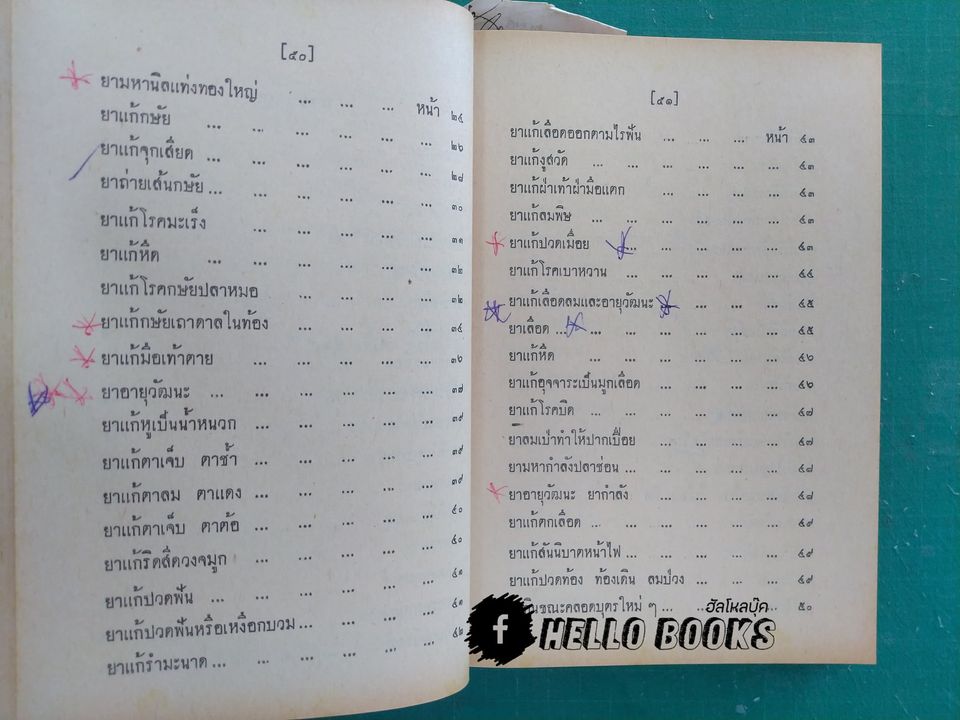 [๕๐]
ยามหานิลแท่งทองใหญ่ ... ... ... หน้า ๒๔
ยาแก้กษัย ... ... ... ... ๒๖
ยาแก้จุกเสียด ... ... ... ... ... ๒๘
ยาถ่ายเส้นกษัย ... ... ... ... ... ๓๐
ยาแก้โรคมะเร็ง ... ... ... ... ๓๑
ยาแก้หืด ... ... ... ... ... ๓๒
ยาแก้โรคกษัยปลาหมอ ... ... ... ... ๓๒
ยาแก้กษัยเถาดาลในท้อง ... ... ... ... ๓๔
ยาแก้มือเท้าตาย ... ... ... ... ... ๓๖
ยาอายุวัฒนะ ... ... ... ... ... ๓๗
ยาแก้หูเป็นน้ำหนวก ... ... ... ... ... ๓๙
ยาแก้ตาเจ็บ ตาช้ำ ... ... ... ... ... ๓๙
ยาแก้ตาลม ตาแดง ... ... ... ... ... ๓๙
ยาแก้ตาเจ็บ ตาต้อ ... ... ... ... ... ๔๐
ยาแก้ริดสีดวงจมูก ... ... ... ... ๔๐
ยาแก้ปวดฟัน ... ... ... ... ... ๔๑
ยาแก้ปวดฟันหรือเหงือกบวม ... ... ... ... ๔๑
ยาแก้รำมะนาด ... ... ... ... ... ๔๒
[๕๑]
ยาแก้เลือดออกตามไรฟัน ... ... ... หน้า ๔๓
ยาแก้งูสวัด ... ... ... ... ... ๔๓
ยาแก้ฝ่าเท้าฝ่ามือแตก ... ... ... ... ๔๓
ยาแก้ลมพิษ ... ... ... ... ... ๔๓
ยาแก้ปวดเมื่อย ... ... ... ... ... ๔๓
ยาแก้โรคเบาหวาน ... ... ... ... ๔๔
ยาแก้เลือดลมและอายุวัฒนะ ... ... ... ... ๔๕
ยาเลือด ... ... ... ... ... ... ๔๕
ยาแก้หิด ... ... ... ... ... ๔๖
ยาแก้อุจจาระเป็นมูกเลือด ... ... ... ... ๔๖
ยาแก้โรคบิด ... ... ... ... ... ๔๗
ยาลมเป่าทำให้ปากเปื่อย ... ... ... ... ๔๗
ยามหากำลังปลาช่อน ... ... ... ... ๔๘
ยาอายุวัฒนะ ยากำลัง ... ... ... ... ๔๘
ยาแก้ตกเลือด ... ... ... ... ... ๔๙
ยาแก้สันนิบาตหน้าไฟ ... ... ... ... ๔๙
ยาแก้ปวดท้อง ท้องเดิน ลมป่วง ... ... ... ๔๙
ในขณะคลอดบุตรใหม่ ๆ ... ... ... ... ๕๐
ฮัลโหลบุ๊ค
f HELLO BOOKS